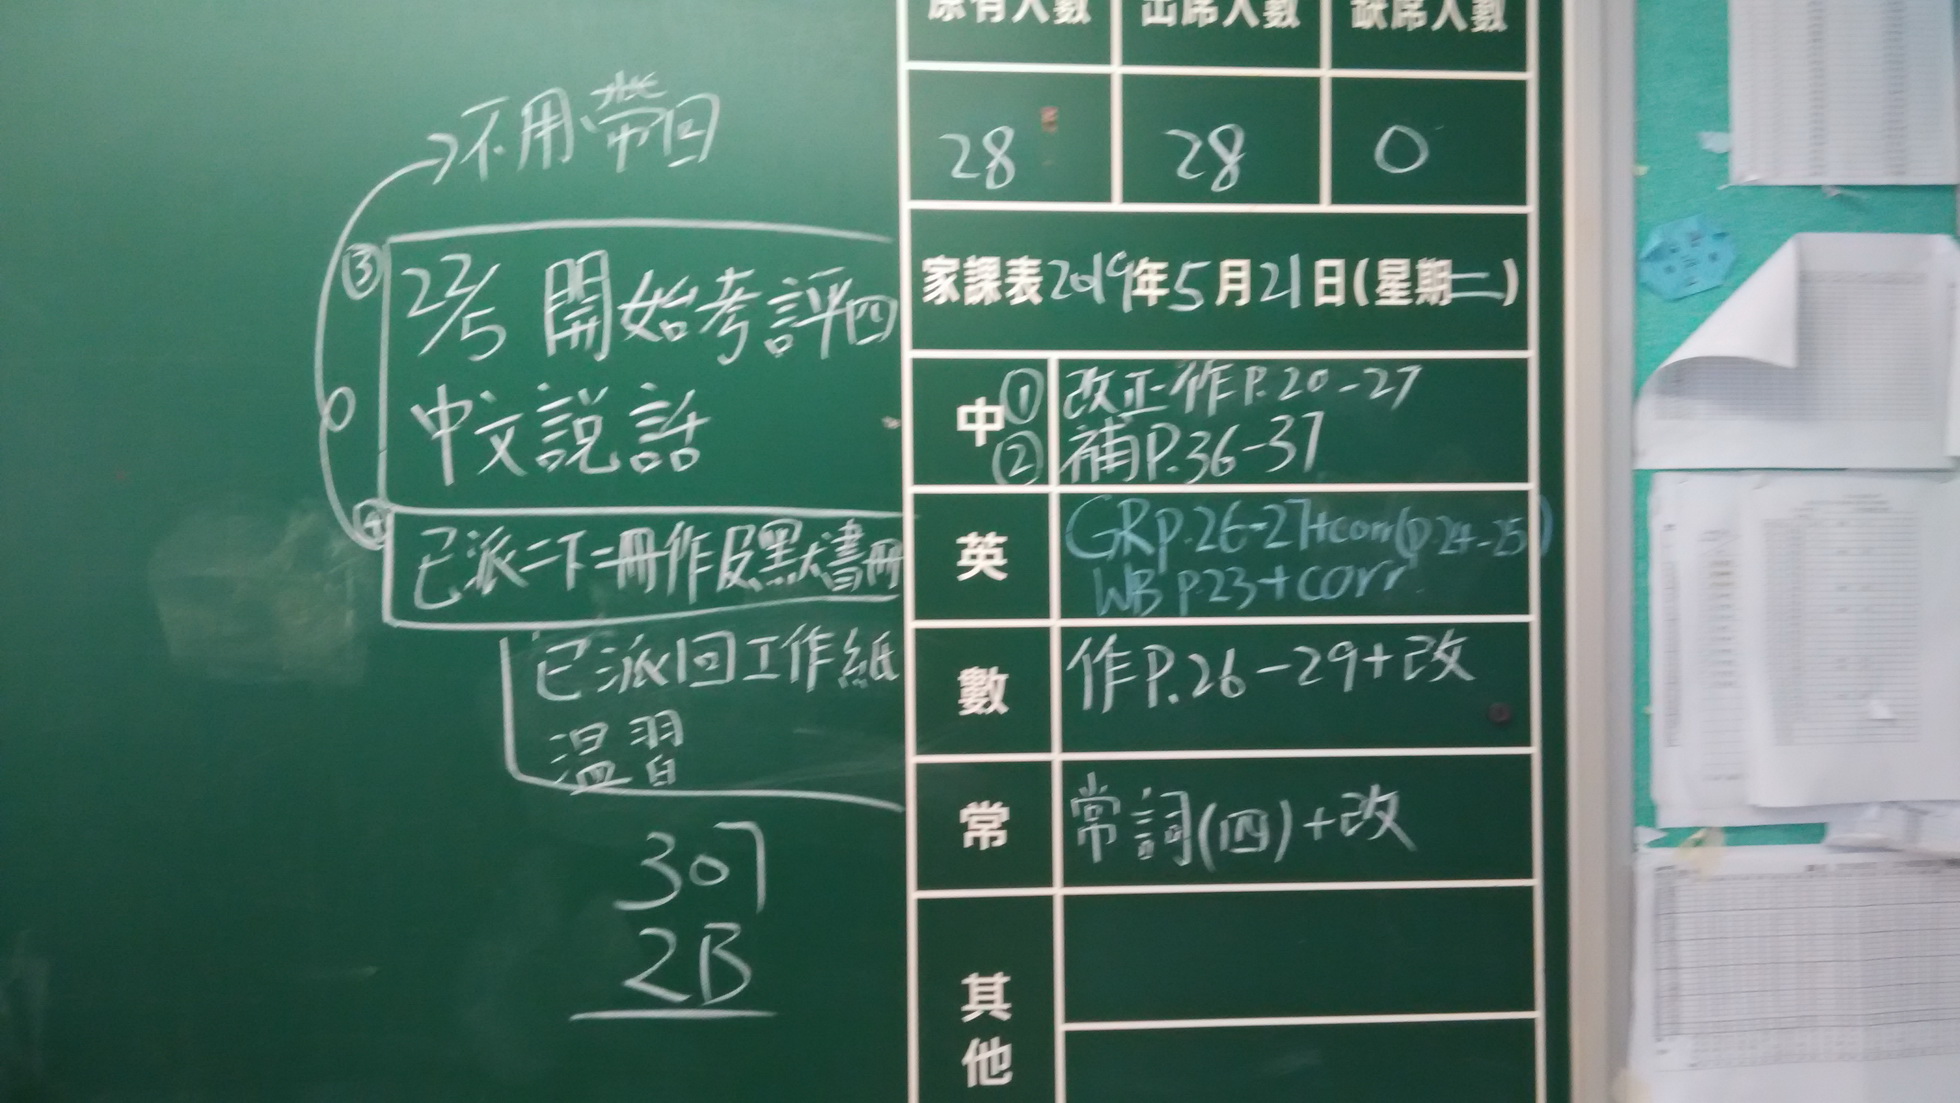 原有人數 出席人數 缺席人數
28 28 0
家課表2019年5月21日(星期二)
中 ① 改正作P.20-27
② 補P.36-37
英 GRp.26-27+corr(p.24-25)
WB p.23+corr.
數 作P.26-29+改
常 常詞(四)+改
其他
→不用帶回
③ 22/5 開始考評四
中文說話
④ 已派二下二冊作及默書冊
已派回工作紙
溫習
307
2B